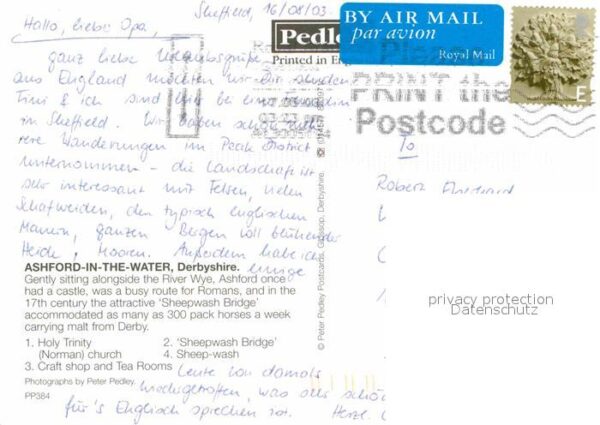 Sheffield, 16/08/03
Hallo, lieber Opa,
ganz liebe Urlaubsgrüße
aus England möchten wir Dir senden
Tini & ich sind hier bei einer
in Sheffield. Wir haben schon
rere Wanderungen im Peak District
unternommen - die Landschaft ist
sehr interessant mit Felsen, vielen
Schafweiden, den typisch englischen
Mauern, ganzen Bergen voll blühender
Heide, Mooren. Außerdem habe ich
einige
ASHFORD-IN-THE-WATER, Derbyshire.
Gently sitting alongside the River Wye, Ashford once
had a castle, was a busy route for Romans, and in the
17th century the attractive 'Sheepwash Bridge'
accommodated as many as 300 pack horses a week
carrying malt from Derby.
1. Holy Trinity
(Norman) church
2. 'Sheepwash Bridge'
4. Sheep-wash
3. Craft shop and Tea Rooms
Photographs by Peter Pedley.
PP384
Leute von damals
wiedergetroffen, was sehr schön
für's Englisch sprechen ist. Herzl.
Pedley
Printed in Eng
© Peter Pedley Postcards, Glossop, Derbyshire.
BY AIR MAIL
par avion
Royal Mail
E
Please
PRINT the
Postcode
To
Robert
privacy protection
Datenschutz